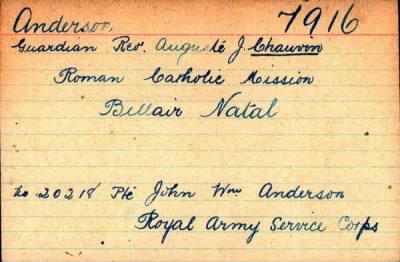 Anderson, 7916
Guardian Rev. Augusté J. Chauvin
Roman Catholic Mission
Bellair Natal
No 20218 Pte John Wm Anderson
Royal Army Service Corps